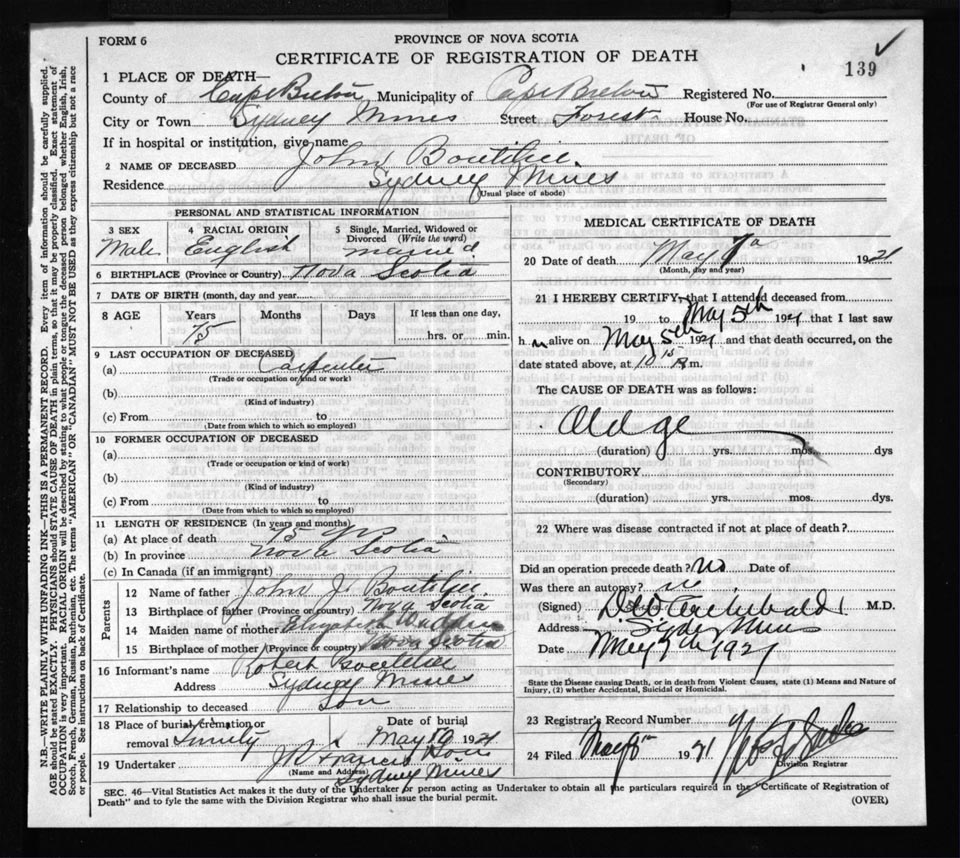 FORM 6
PROVINCE OF NOVA SCOTIA
CERTIFICATE OF REGISTRATION OF DEATH
139
1 PLACE OF DEATH—
County of Cape Breton Municipality of Cape Breton Registered No.
(For use of Registrar General only)
City or Town Sydney Mines Street Forest House No.
If in hospital or institution, give name
2 NAME OF DECEASED John Boutilier
Residence Sydney Mines
(Usual place of abode)
PERSONAL AND STATISTICAL INFORMATION
3 SEX Male
4 RACIAL ORIGIN English
5 Single, Married, Widowed or Divorced (Write the word) married
6 BIRTHPLACE (Province or Country) Nova Scotia
7 DATE OF BIRTH (month, day and year)
8 AGE Years Months Days If less than one day,
75 hrs. or min.
9 LAST OCCUPATION OF DECEASED
(a) Carpenter
(Trade or occupation or kind or work)
(b)
(Kind of industry)
(c) From to
(Date from which to which so employed)
10 FORMER OCCUPATION OF DECEASED
(a)
(Trade or occupation or kind of work)
(b)
(Kind of industry)
(c) From to
(Date from which to which so employed)
11 LENGTH OF RESIDENCE (In years and months)
(a) At place of death 75 yrs
(b) In province Nova Scotia
(c) In Canada (if an immigrant)
Parents
12 Name of father John J. Boutilier
13 Birthplace of father (Province or country) Nova Scotia
14 Maiden name of mother Elizabeth
15 Birthplace of mother (Province or country) Nova Scotia
16 Informant's name Robert Boutilier
Address Sydney Mines
17 Relationship to deceased Son
18 Place of burial, cremation or removal Trinity
Date of burial May 10 1921
19 Undertaker J. W. Francis Sons
(Name and Address) Sydney Mines
MEDICAL CERTIFICATE OF DEATH
20 Date of death May 1921
(Month, day and year)
21 I HEREBY CERTIFY, that I attended deceased from
19 to May 5th 1921 that I last saw
h m alive on May 5th 1921 and that death occurred, on the
date stated above, at 10 m.
The CAUSE OF DEATH was as follows:
Old age
(duration) yrs. mos. dys
CONTRIBUTORY
(Secondary)
(duration) yrs. mos. dys.
22 Where was disease contracted if not at place of death?
Did an operation precede death? no Date of
Was there an autopsy? no
(Signed) Archibald M.D.
Address Sydney Mines
Date May 1921
State the Disease causing Death, or in death from Violent Causes, state (1) Means and Nature of
Injury, (2) whether Accidental, Suicidal or Homicidal.
23 Registrar's Record Number
24 Filed May 1921
Division Registrar
SEC. 46—Vital Statistics Act makes it the duty of the Undertaker or person acting as Undertaker to obtain all the particulars required in the "Certificate of Registration of
Death" and to fyle the same with the Division Registrar who shall issue the burial permit.
(OVER)
N.B.—WRITE PLAINLY WITH UNFADING INK.—THIS IS A PERMANENT RECORD. Every item of information should be carefully supplied.
AGE should be stated EXACTLY. PHYSICIANS should STATE CAUSE OF DEATH in plain terms, so that it may be properly classified. Exact statement of
OCCUPATION is very important. RACIAL ORIGIN will be described by stating to what people or tongue the deceased person belonged whether English, Irish,
Scotch, French, German, Russian, Ruthenian, etc. The terms "AMERICAN" OR "CANADIAN" MUST NOT BE USED as they express citizenship but not a race
or people. See instructions on back of Certificate.